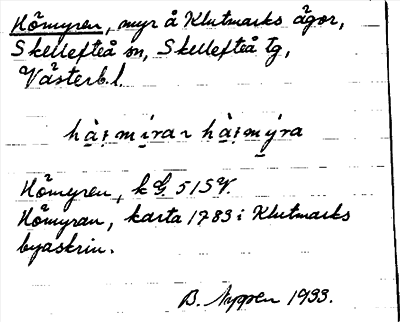 Hömyren, myr å Klutmarks ägor,
Skellefteå sn, Skellefteå tg,
Västerb.l.
hà̤i̯mi̤ra ~ hà̤i̯mý̤ra
Hömyren, k G. 515 V.
Hömyran, karta 1783 i Klutmarks
byaskrin.
B. 1933.